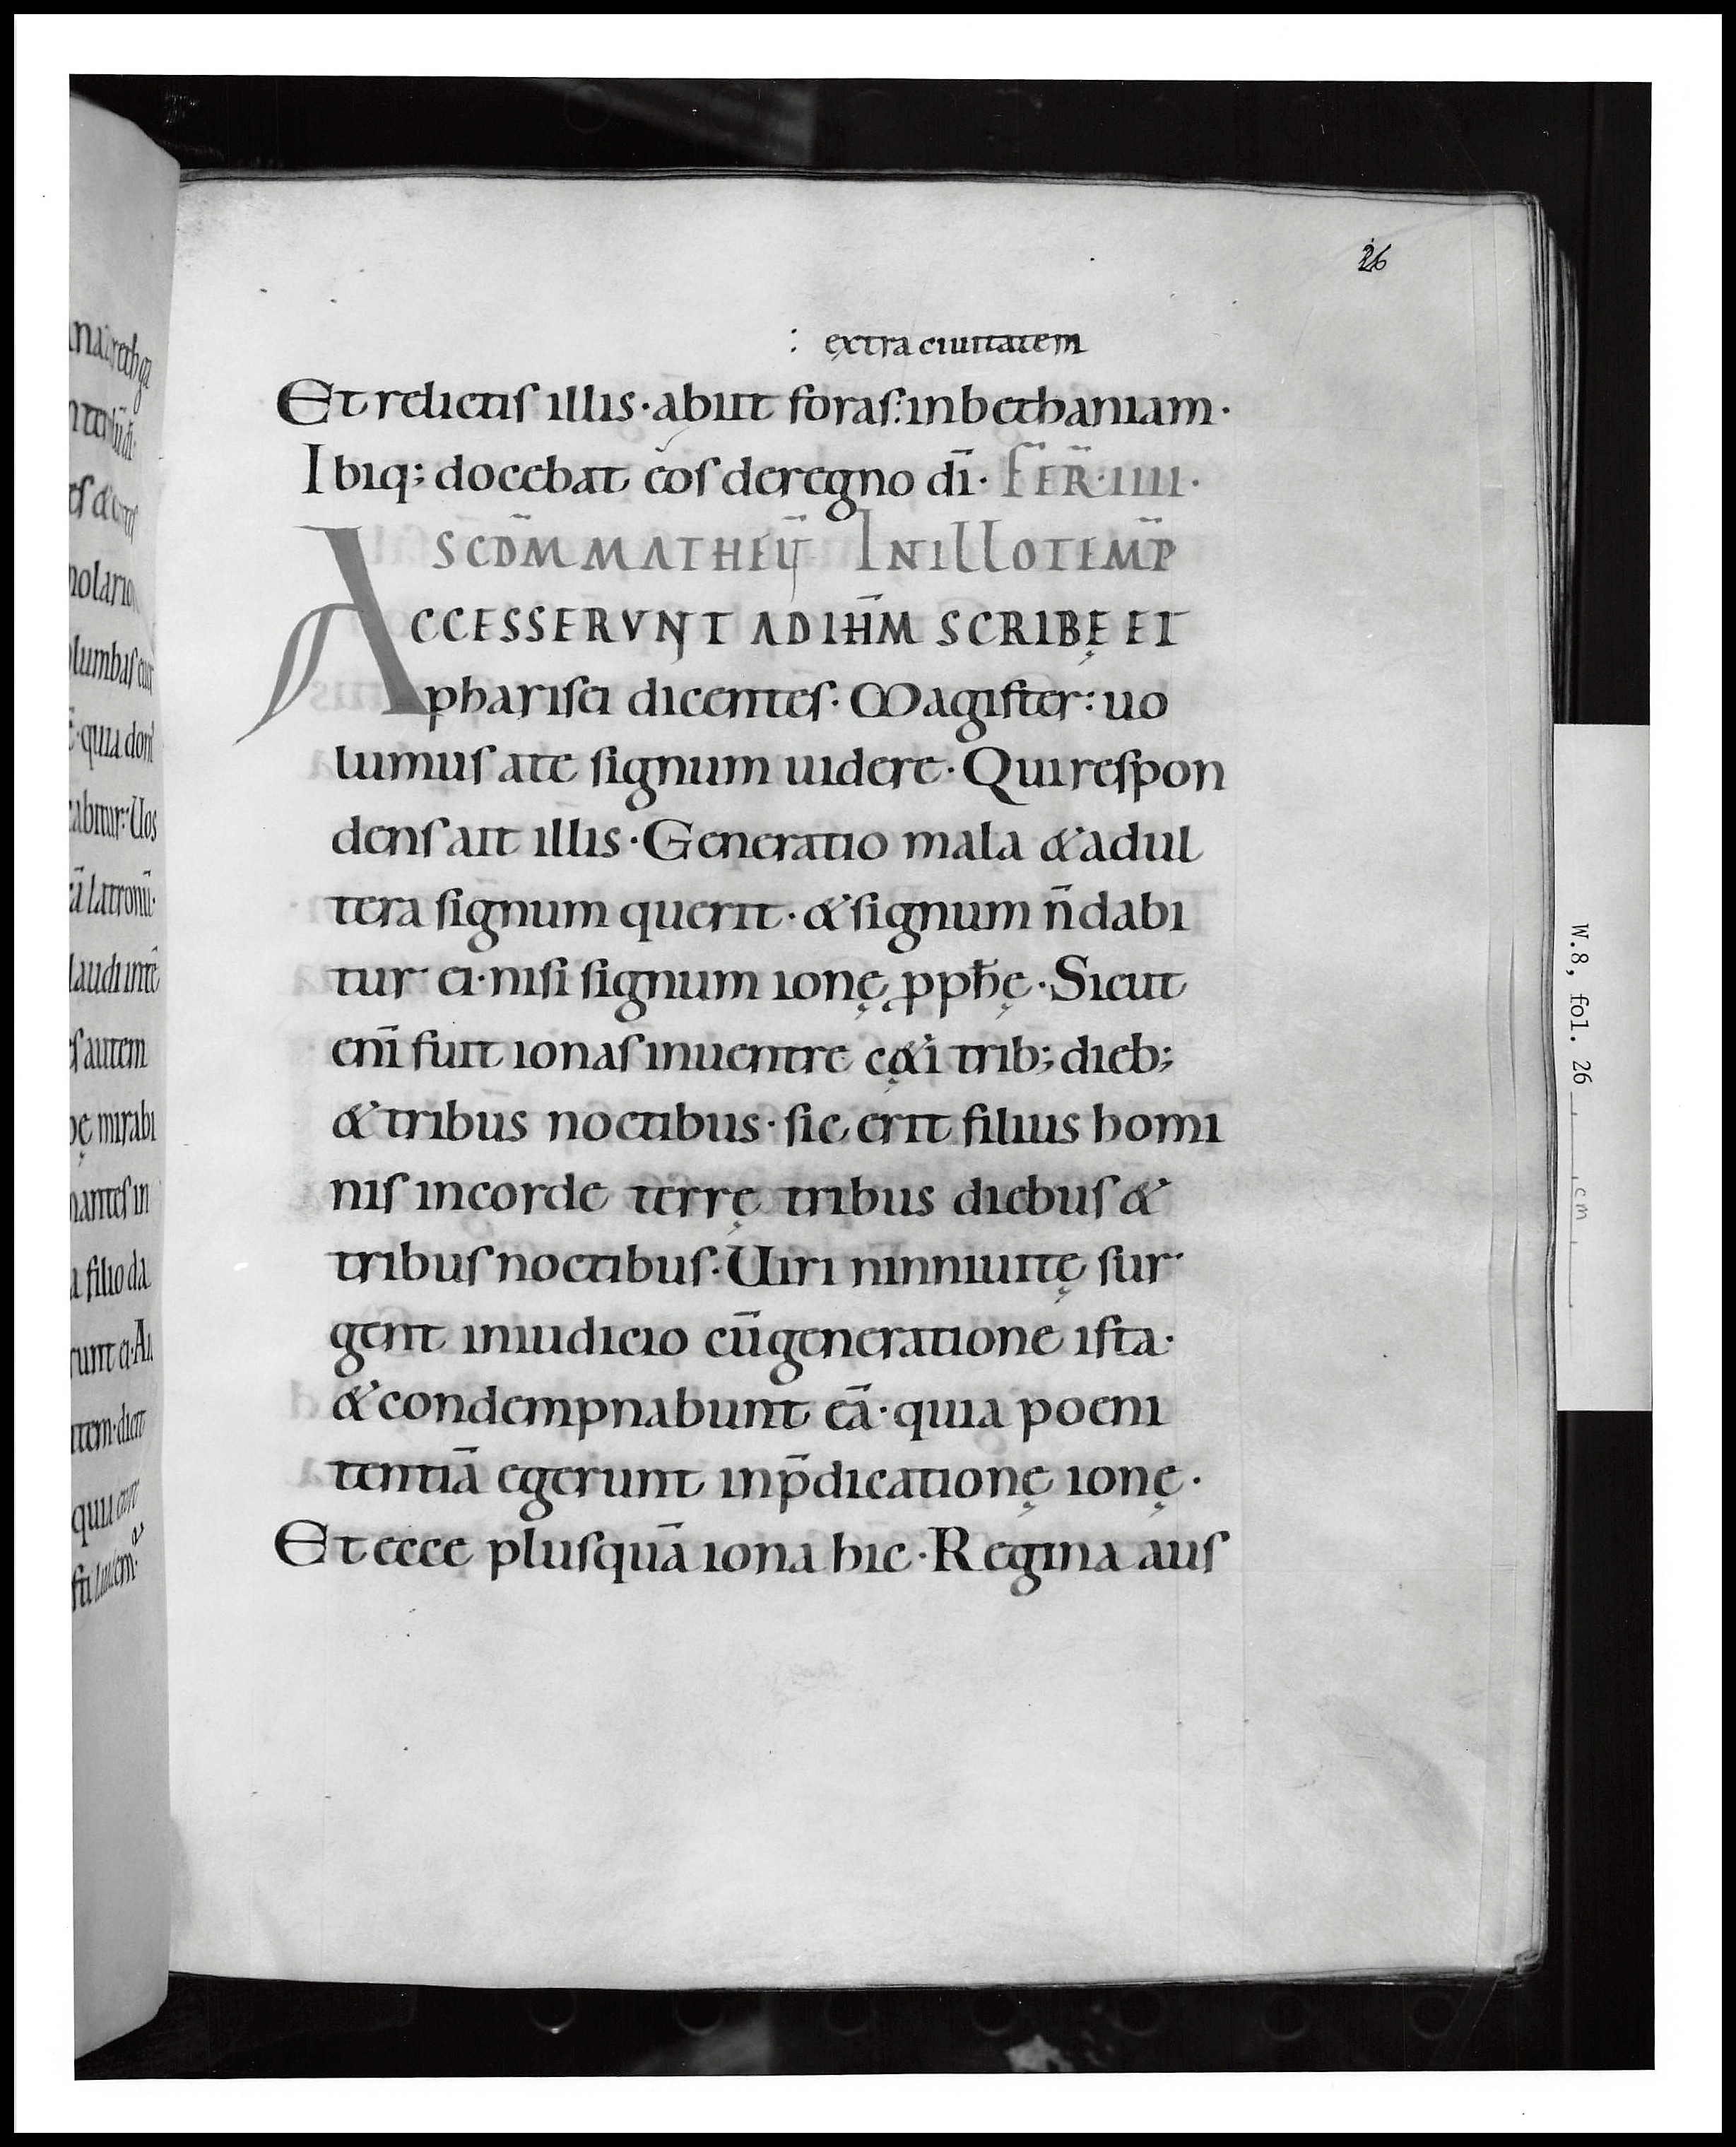 26
: extra ciuitatem
Et relictis illis · abiit foras : in bethaniam ·
Ibiq; docebat eos de regno dī · FER̄ · IIII ·
SCDM̄ MATHEŪ IN ILLO TEMP̄
ACCESSERVNT AD IHM̄ SCRIBĘ ET
pharisei dicentes · Magister : uo
lumus a te signum uidere · Qui respon
dens ait illis · Generatio mala & adul
tera signum querit · & signum n̄ dabi
tur ei · nisi signum ionę pphę · Sicut
enī fuit ionas in uentre cęti trib; dieb;
& tribus noctibus · sic erit filius homi
nis in corde terrę tribus diebus &
tribus noctibus · Uiri ninniuitę sur
gent in iudicio cū generatione ista ·
& condempnabunt eā · quia poeni
tentiā egerunt in p̄dicationę ionę ·
Et ecce plusquā iona hic · Regina aus
na
nolario
lumbas
quia dom
abitur : Uos
ā latronū ·
laudi inte
s autem
bę mirabi
nantes in
a filio da
runt ei · A
item · dicit
quia
W.8, fol. 26
cm